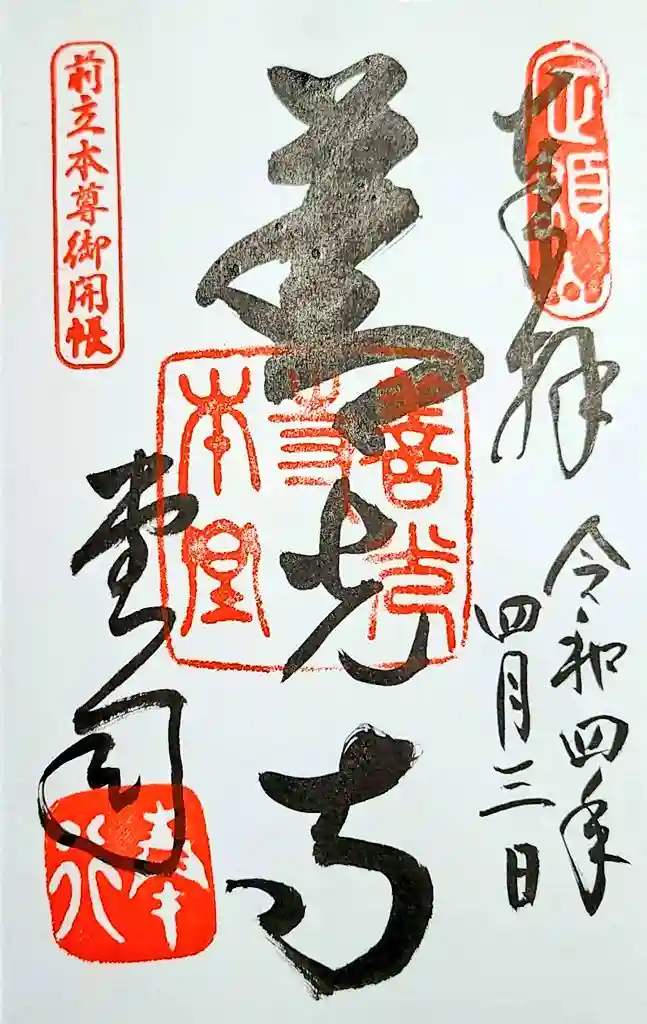 奉拝
令和四年
四月三日
定額山
善光寺
善光寺本堂
堂司
前立本尊御開帳
奉行